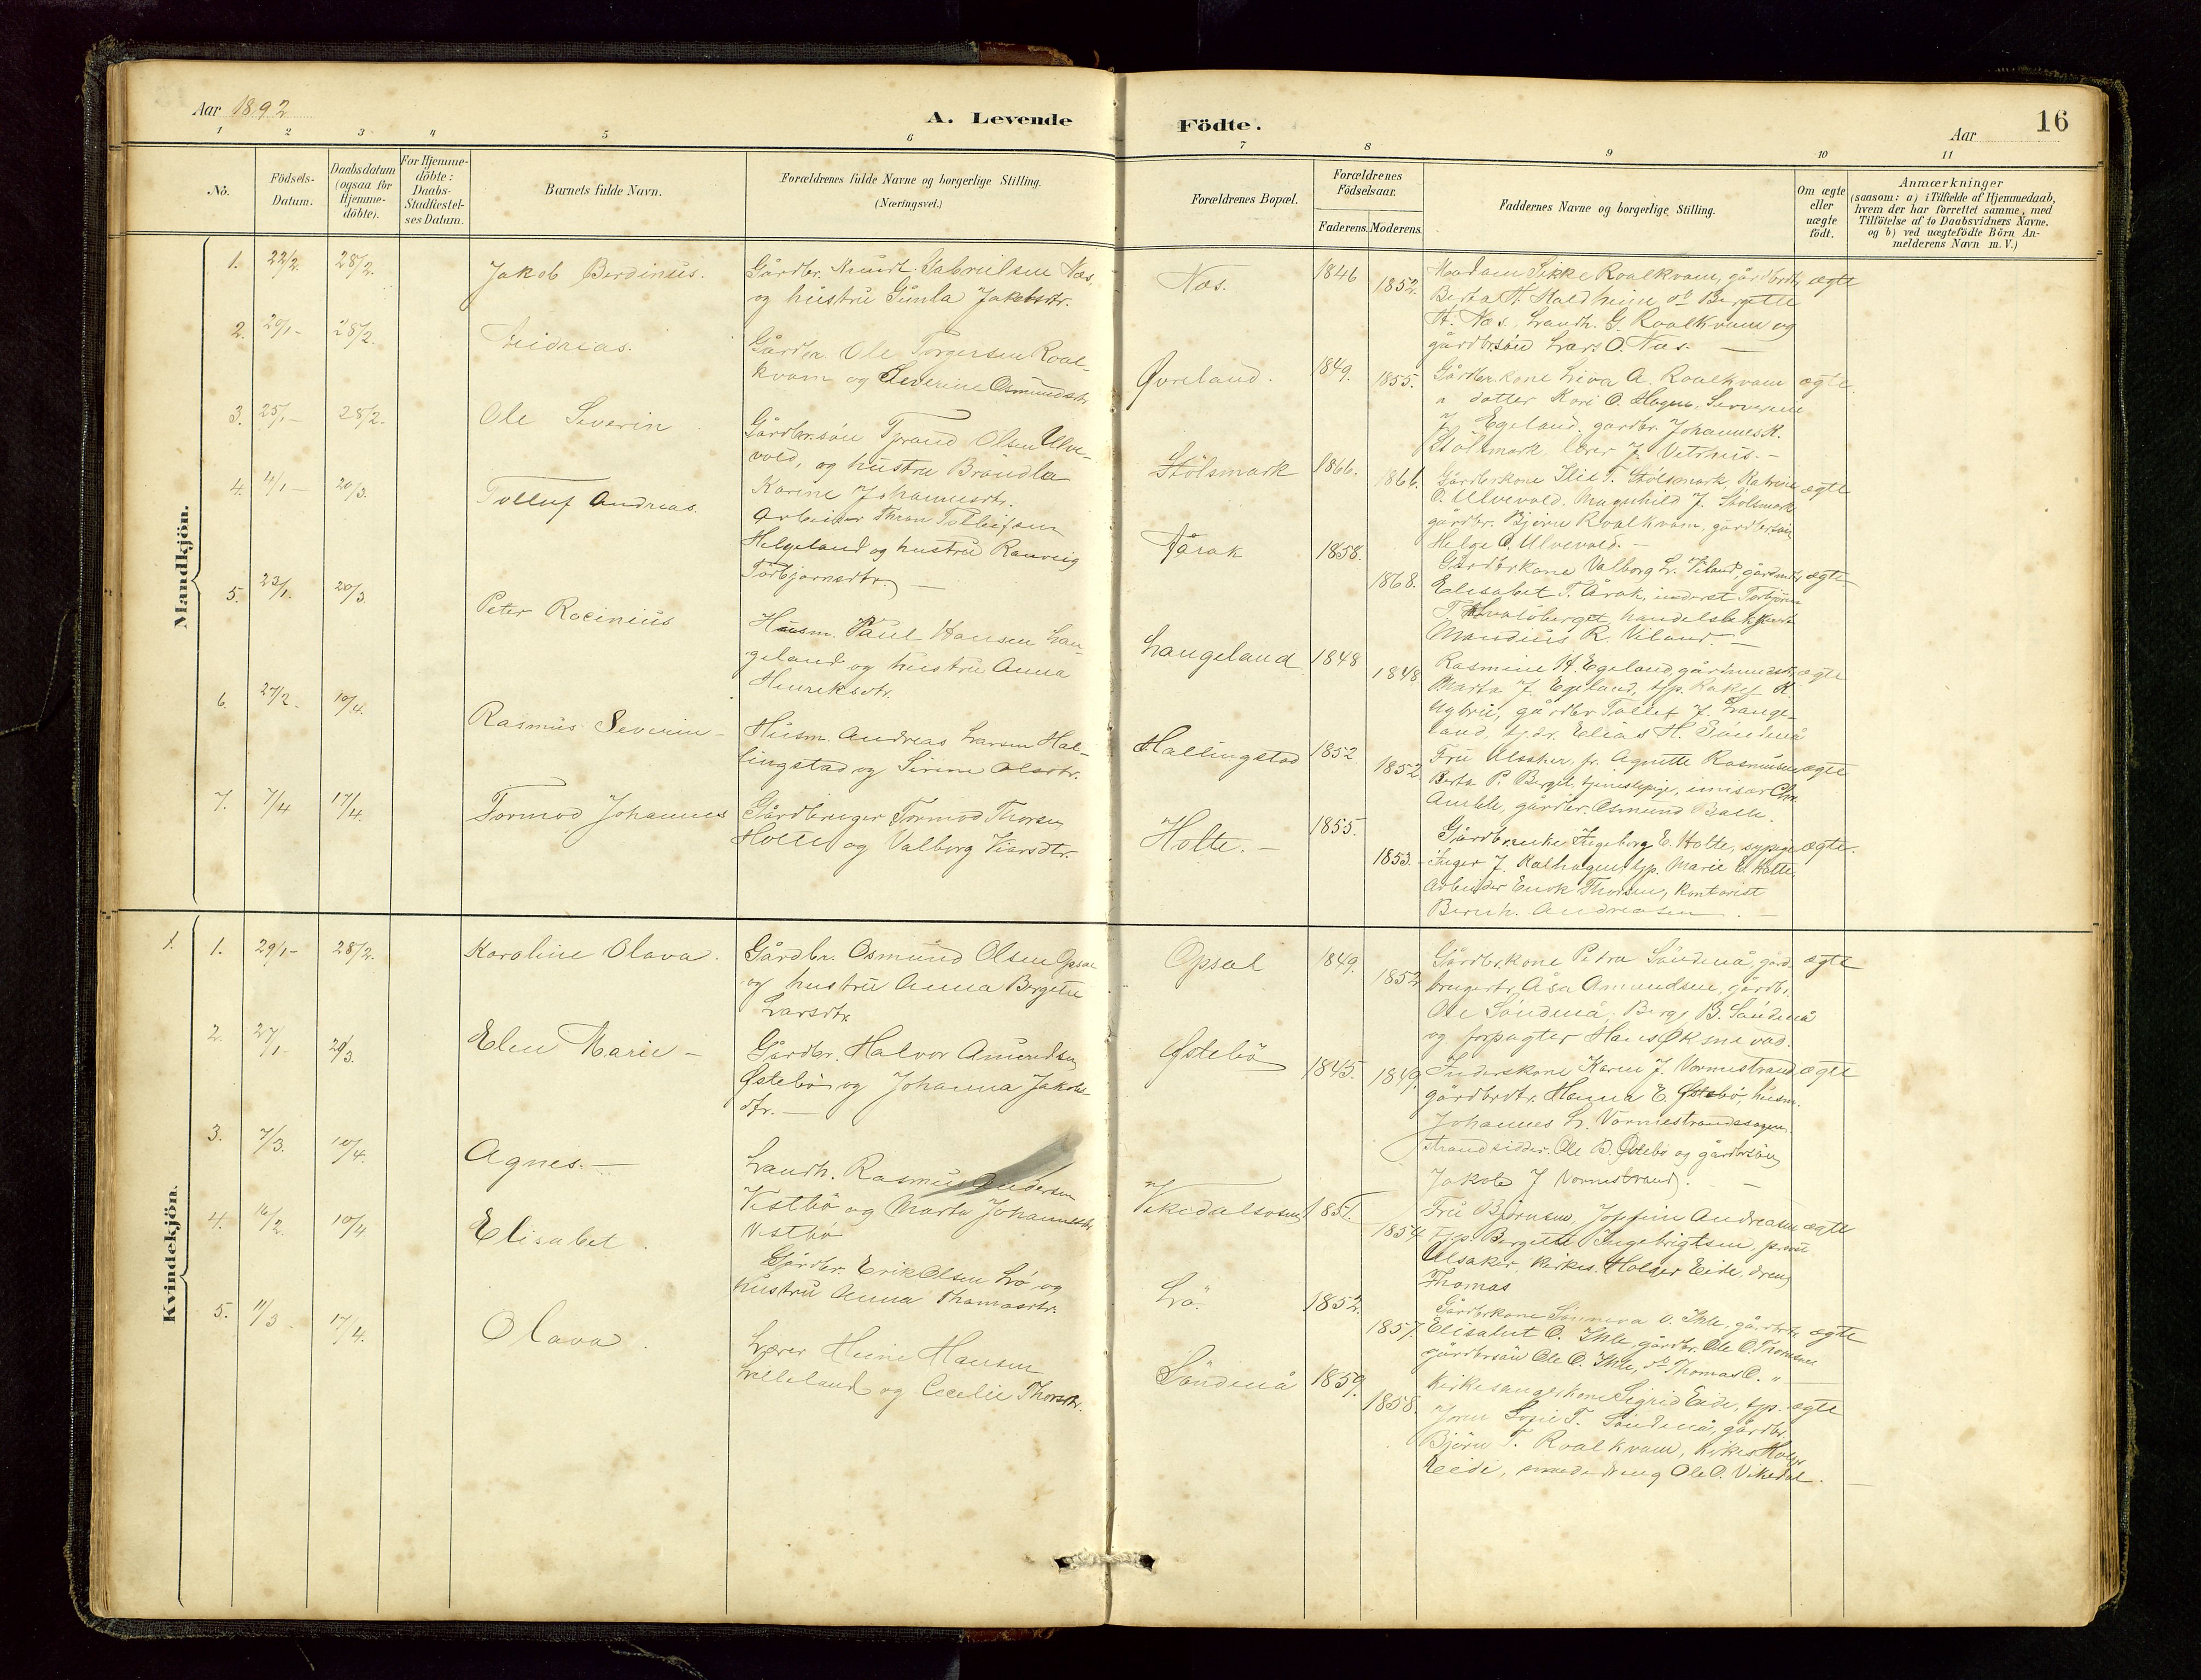 Aar 1892
A. Levende
Födte.
Aar
16
1 2 3 4 5 6 7 8 9 10 11
No.
Födsels-
Datum.
Daabsdatum
(ogsaa for
Hjemme-
döbte).
For Hjemme-
döbte:
Daabs-
Stadfæstel-
ses Datum.
Barnets fulde Navn.
Forældrenes fulde Navne og borgerlige Stilling.
(Næringsvei.)
Forældrenes Bopæl.
Forældrenes
Födselsaar.
Faderens. Moderens.
Faddernes Navne og borgerlige Stilling.
Om ægte
eller
uægte
födt.
Anmærkninger
(saasom: a) i Tilfælde af Hjemmedaab,
hvem der har forrettet samme, med
Tilföielse af to Daabsvidners Navne.
og b) ved uægtefödte Börn An-
melderens Navn m. V.)
Mandkjön.
1. 22/2. 28/2.
Jakob Berdinus.
Gårdbr. Knud Gabrielsen Næs,
og hustru Gunla Jakobsdtr.
Næs.
1846 1852.
Madam Sikke Roalkvam, gårdbrdtr.
Berta H. Haldheim do Bergitte
H. Næs, Landh. G. Roalkvam og
gårdbrsön Lars O. Næs. —
ægte
2. 20/1- 28/2.
Andreas.
Gårdbr. Ole Torgersen Roal-
kvam og Severine Osmundsdtr
Øvreland.
1849. 1855.
Gårdbr.kone Liva A. Roalkvam
datter Kari O.
J. Egeland, gårdbr. Johannes K.
Stölsmark, lærer J. Vetrhus. -
ægte
3. 25/1- 28/2.
Ole Severin
Gårdbr.sön Tprand Olsen Ulve-
vold, og hustru Brøndla
Karine Johannesdtr.
Stölsmark
1866. 1866.
Gårdbrkone Ilie T. Stølsmark, Katrine
O. Ulvevold, Magnhild J. Stölsmark
gårdbr. Bjørn Roalkvam, gårdbrsön
Helge O. Ulvevold. -
ægte
4. 4/1- 20/3.
Tollef Andreas.
Arbeider Thran Tollefsen
Helgeland og hustru Ranveig
Torbjørnsdtr. —
Årak
1858. 1868.
Gårdbrkone Valborg L. Viland, gårdmdtr
Elisabet T. Årak, inderst Torbjörn
T. Svalöberget, handelsbetjent
Mandius R. Viland —
ægte
5. 23/1. 20/3
Peter Racinius
Husm. Paul Hansen Lan-
geland og hustru Anna
Henriksdtr.
Langeland
1848 1848
Rasmine H. Egeland, gårdmandsdtr,
Marta J. Egeland, tjp. Rakel K.
Nybru, gårdbr Tollef J. Lange-
land, tj.dr. Elias H. Söndenå
ægte
6. 27/2. 10/4.
Rasmus Severin -
Husm. Andreas Larsen Hal-
lingstad og Sirine Olsdtr.
Hallingstad
1852 1852
Fru Alsaker, fr. Agnette Rasmussen
Berta P. Berget, tjenestepige, Chr.
Amble, gårdbr. Osmund Balle.
ægte
7. 7/4 17/4.
Tormod Johannes
Gårdbruger Tormod Thorsen
Holte og Valborg Viarsdtr.
Holte. -
1855. 1853. -
Gårdbr.enke Ingeborg E. Holte, sypige
Inger J. Kalhagen, tjp. Marie E. Holte,
Arbeider Enok Thorsen, Kontorist
Bernh. Andreasen. -
ægte.
Kvindekjön.
1. 1. 29/1- 28/2.
Karoline Olava.
Gårdbr. Osmund Olsen Opsal
og hustru Anna Bergitte
Larsdtr.
Opsal
1849. 1852
Gårdbr.kone Petra Söndenå, gård-
brugerdtr. Åsa Amundsen, gårdbr.
Ole Söndenå, Berge B. Söndenå
og forpagter Hans Øksnevad.
ægte
2. 27/1- 20/3.
Elen Marie -
Gårdbr. Halvor Amundsen
Østebö og Johanna Jakobs-
dtr. —
Østebö
1845. 1849.
Inderskone Karen J. Vormestrand,
gårdbrdtr. Hanna E. Østebö, husm.
Johannes L. Vormestrandssagen
strandsidder. Ole B. Østebö og gårdbrsön
Jakob J Vormestrand. —
ægte
3. 7/3. 10/4.
Agnes. —
Landh. Rasmus Pedersen
Vestbö og Marta Johannesdtr
Vestbö
Vikedalsosen
1851. 1854
Fru Björnsen, Josefine Andreasen
Tjp. Bergitte Ingebrigtsen, provst
Alsaker, kirkes. Holger Eide, dreng
Thomas
ægte
4. 16/2. 10/4
Elisabet.
Gårdbr. Erik Olsen Lö og
hustru Anna Thomasdtr.
Lö.
1852. 1857.
Gårdbrkone Sönneva O. Ihle, gårdbrdtr
Elisabet O. Ihle, gårdbr. Ole O. Thomsen
gårdbrsön Ole O. Ihle, do Thomas O. "
ægte
5. 11/3. 17/4.
Olava.
Lærer Heine Hansen
Lilleland og Cecelie Thorsdtr.
Söndenå
1859. 1858.
Kirkesangerkone Sigrid Eide, tjp.
Joren Sofie T. Söndenå, gårdbr.
Björn T. Roalkvam, Kirkes. Holger
Eide, smededreng Ole O. Vikedal.
ægte